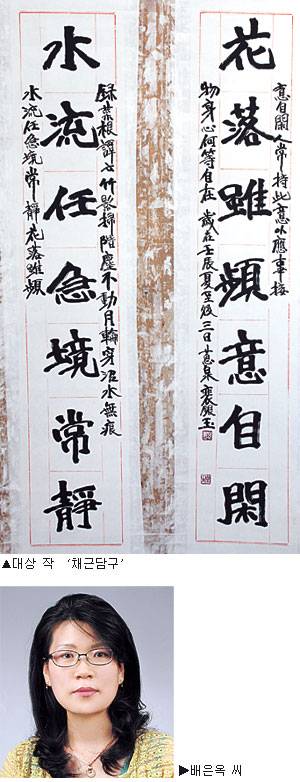 意自閑人常持此意以應事接
花落雖頻意自閑
物身心何等自在 歲在壬辰夏至後三日 意泉裵銀玉
錄菜根譚句竹影掃階塵不動月輪穿沼水無痕
水流任急境常靜
水流任急境常靜花落雖頻
▲대상 작 '채근담구'
▶배은옥 씨